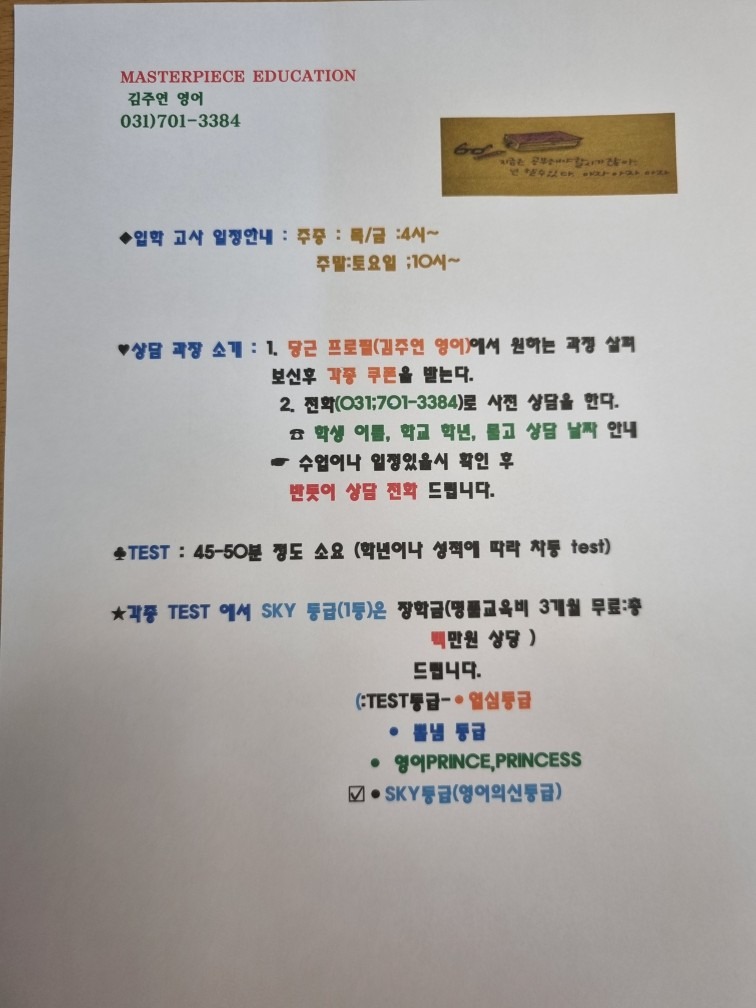 MASTERPIECE EDUCATION
김주연 영어
031)701-3384
지금은 공부해야 할 시간
넌 할수있다 아자 아자 아자
◆입학 고사 일정안내 : 주중 : 목/금 :4시~
주말:토요일 ;10시~
♥상담 과장 소개 : 1. 당근 프로필(김주연 영어)에서 원하는 과정 살펴
보신후 각종 쿠폰을 받는다.
2. 전화(031;701-3384)로 사전 상담을 한다.
☎ 학생 이름, 학교 학년, 묻고 상담 날짜 안내
☛ 수업이나 일정있을시 확인 후
반듯이 상담 전화 드립니다.
♣TEST : 45-50분 정도 소요 (학년이나 성적에 따라 차등 test)
★각종 TEST 에서 SKY 등급(1등)은 장학금(명품교육비 3개월 무료:총
백만원 상당 )
드립니다.
(:TEST등급-•열심등급
• 뽐냄 등급
• 영어PRINCE,PRINCESS
☑ •SKY등급(영어의신등급)